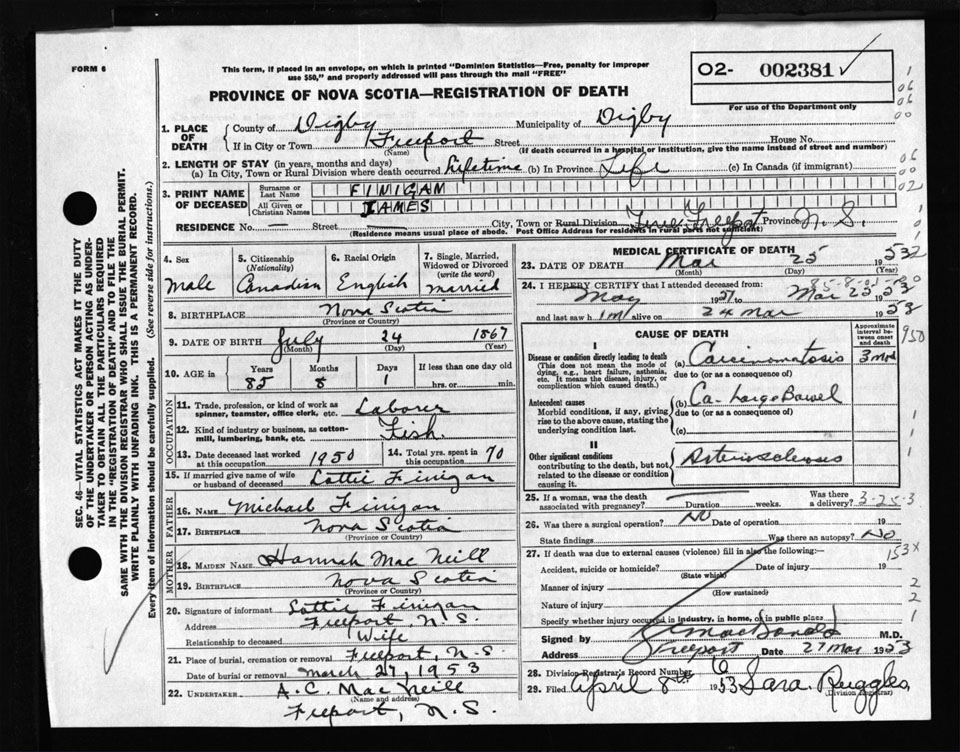 FORM 6
This form, if placed in an envelope, on which is printed "Dominion Statistics—Free, penalty for improper
use $50," and properly addressed will pass through the mail "FREE"
02- 002381 ✓
For use of the Department only
PROVINCE OF NOVA SCOTIA—REGISTRATION OF DEATH
SEC. 46—VITAL STATISTICS ACT MAKES IT THE DUTY
OF THE UNDERTAKER OR PERSON ACTING AS UNDER-
TAKER TO OBTAIN ALL THE PARTICULARS REQUIRED
IN THE "REGISTRATION OF DEATH" AND TO FILE THE
SAME WITH THE DIVISION REGISTRAR WHO SHALL ISSUE THE BURIAL PERMIT.
WRITE PLAINLY WITH UNFADING INK. THIS IS A PERMANENT RECORD.
Every item of information should be carefully supplied. (See reverse side for instructions.)
1. PLACE OF DEATH
County of Digby Municipality of Digby
If in City or Town Freeport Street House No.
(Name) (If death occurred in a hospital or institution, give the name instead of street and number)
2. LENGTH OF STAY (in years, months and days)
(a) In City, Town or Rural Division where death occurred Lifetime (b) In Province Life (c) In Canada (if immigrant)
3. PRINT NAME OF DECEASED
Surname or Last Name FINIGAN
All Given or Christian Names JAMES
RESIDENCE No. — Street — City, Town or Rural Division Freeport Province N.S.
(Residence means usual place of abode. Post Office Address for residents in rural parts not sufficient)
4. Sex Male
5. Citizenship (Nationality) Canadian
6. Racial Origin English
7. Single, Married, Widowed or Divorced (write the word) married
8. BIRTHPLACE Nova Scotia
(Province or Country)
9. DATE OF BIRTH July 24 1867
(Month) (Day) (Year)
10. AGE in Years 85 Months 8 Days 1 If less than one day old hrs. or min.
OCCUPATION
11. Trade, profession, or kind of work as spinner, teamster, office clerk, etc. Laborer
12. Kind of industry or business, as cotton-mill, lumbering, bank, etc. Fish.
13. Date deceased last worked at this occupation 1950
14. Total yrs. spent in this occupation 70
15. If married give name of wife or husband of deceased Lottie Finigan
FATHER
16. NAME Michael Finigan
17. BIRTHPLACE Nova Scotia
(Province or Country)
MOTHER
18. MAIDEN NAME Hannah Mac Neill
19. BIRTHPLACE Nova Scotia
(Province or Country)
20. Signature of informant Lottie Finigan
Address Freeport N.S.
Relationship to deceased Wife
21. Place of burial, cremation or removal Freeport, N.S.
Date of burial or removal March 27, 1953
22. UNDERTAKER A.C. Mac Neill
(Name and address)
Freeport, N.S.
MEDICAL CERTIFICATE OF DEATH
23. DATE OF DEATH Mar 25 1953
(Month) (Day) (Year)
24. I HEREBY CERTIFY that I attended deceased from:
May 1951 Mar 25 1953
and last saw him alive on 24 Mar 1953
CAUSE OF DEATH
Approximate interval between onset and death
I
Disease or condition directly leading to death
(This does not mean the mode of dying, e.g., heart failure, asthenia, etc. It means the disease, injury, or complication which caused death.)
(a) Carcinomatosis 3 mos
due to (or as a consequence of)
Antecedent causes
Morbid conditions, if any, giving rise to the above cause, stating the underlying condition last.
(b) Ca- Large Bowel
due to (or as a consequence of)
(c)
II
Other significant conditions
contributing to the death, but not related to the disease or condition causing it.
Arteriosclerosis
25. If a woman, was the death associated with pregnancy? Duration weeks. Was there a delivery? 3-25-3
26. Was there a surgical operation? No Date of operation 19
State findings Was there an autopsy? No
27. If death was due to external causes (violence) fill in also the following:—
153X
Accident, suicide or homicide? Date of injury 19
(State which)
Manner of injury
(How sustained)
Nature of injury
Specify whether injury occurred in industry, in home, or in public places
Signed by MacDonald M.D.
Address Freeport Date 27 Mar 1953
28. Division Registrar's Record Number 6
29. Filed April 8th 1953 Sara Ruggles
(Division Registrar)